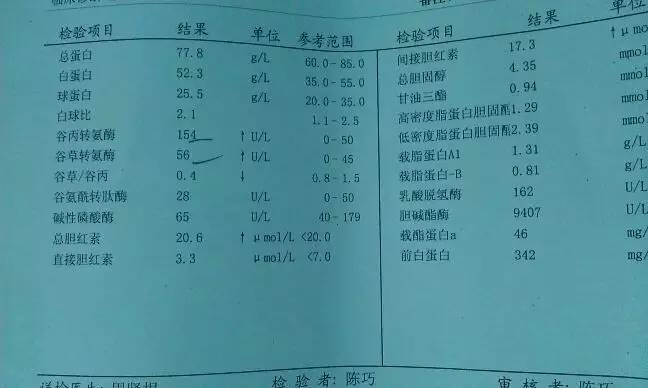 检验项目 结果 单位 参考范围
总蛋白 77.8 g/L 60.0-85.0
白蛋白 52.3 g/L 35.0-55.0
球蛋白 25.5 g/L 20.0-35.0
白球比 2.1 1.1-2.5
谷丙转氨酶 154 ↑ U/L 0-50
谷草转氨酶 56 ↑ U/L 0-45
谷草/谷丙 0.4 ↓ 0.8-1.5
谷氨酰转肽酶 28 U/L 0-50
碱性磷酸酶 65 U/L 40-179
总胆红素 20.6 ↑ μmol/L <20.0
直接胆红素 3.3 μmol/L <7.0
检验项目 结果 单位
间接胆红素 17.3 ↑ μmo
总胆固醇 4.35 mmol
甘油三酯 0.94 mmol
高密度脂蛋白胆固醇1.29 mmol
低密度脂蛋白胆固醇2.39 mmol
载脂蛋白A1 1.31 g/L
载脂蛋白-B 0.81 g/L
乳酸脱氢酶 162 U/L
胆碱酯酶 9407 U/L
载脂蛋白a 46 mg/
前白蛋白 342 mg/
检验者:陈巧 审核者:陈巧